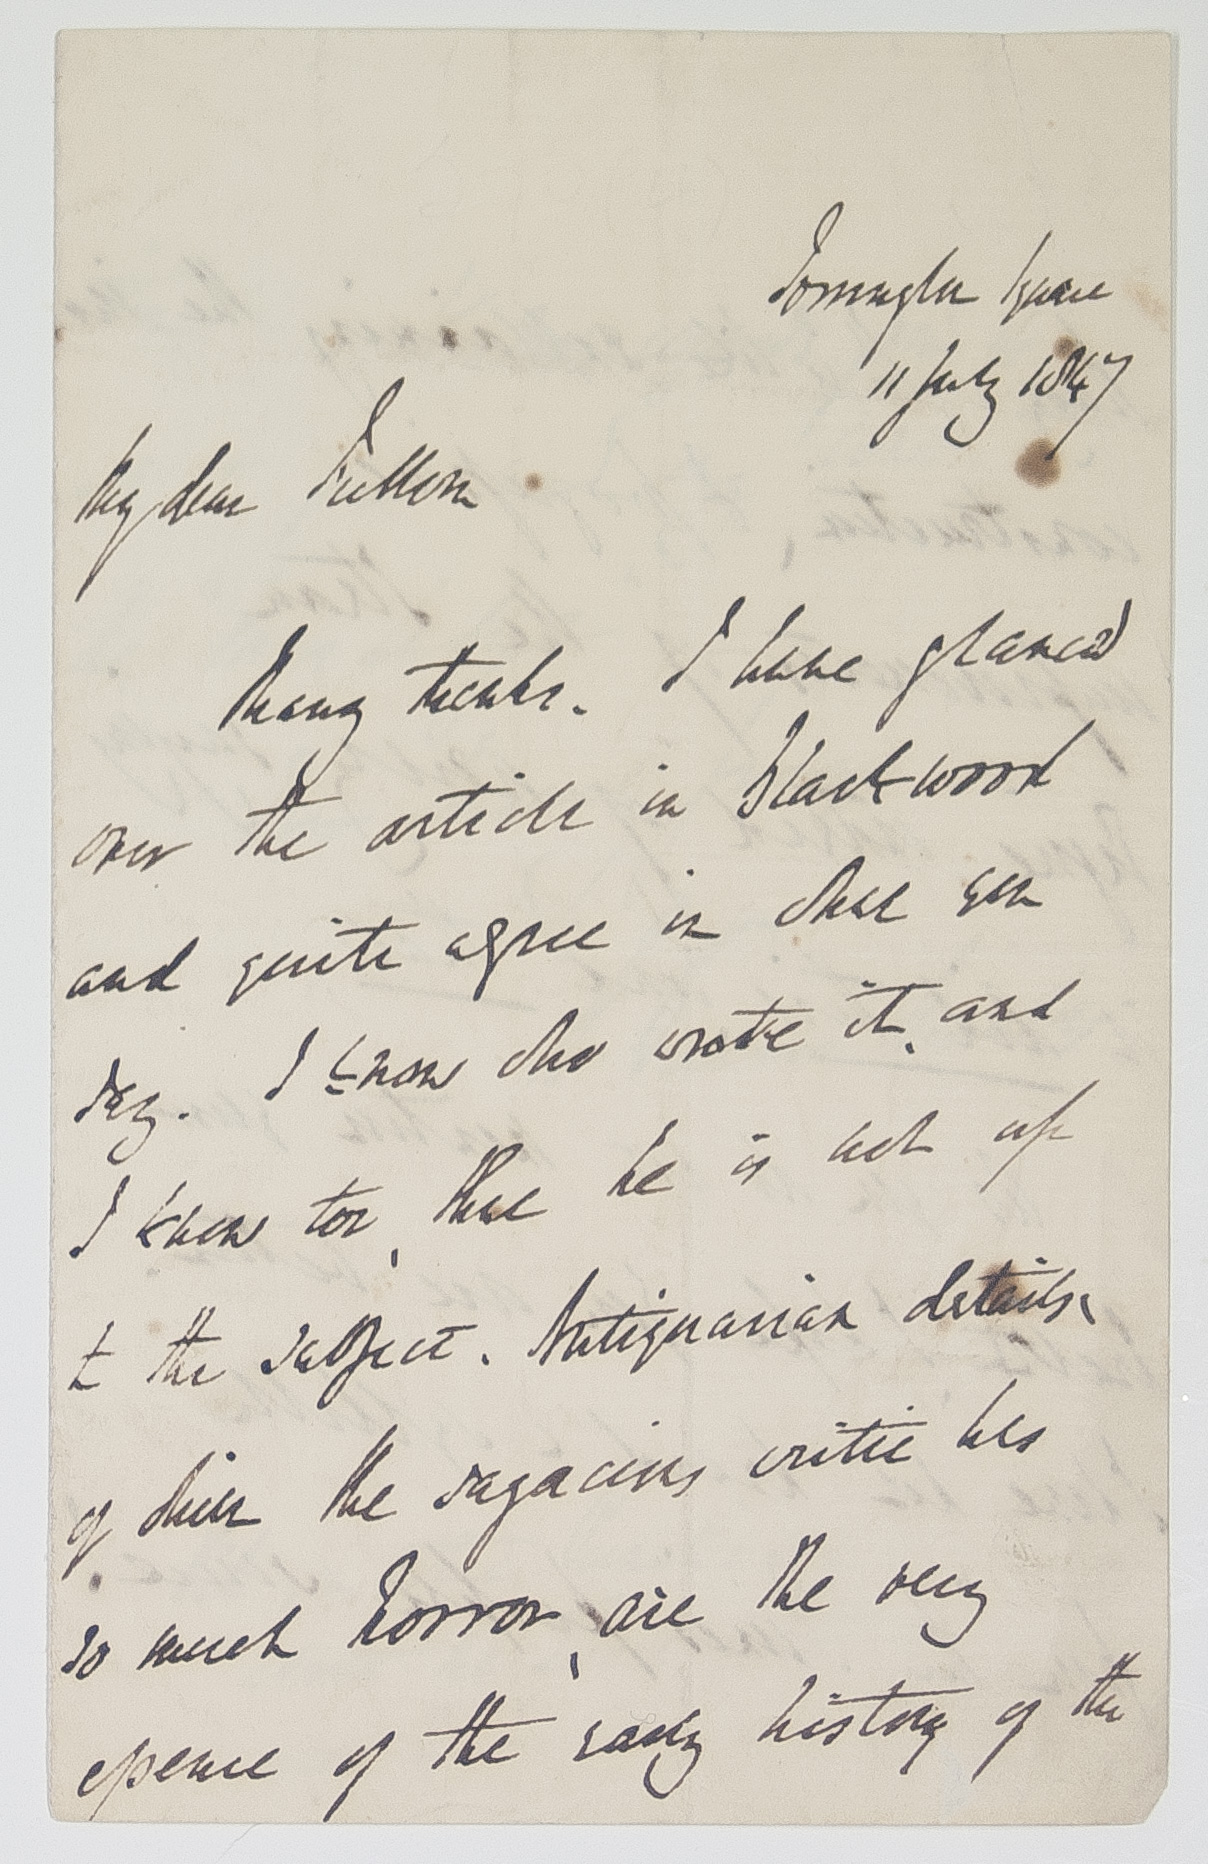 Torrington Square
11 July 1847
My dear
Many thanks. I have glanced
over the article in Blackwood
and quite agree in what you
say. I know who wrote it, and
I know too, that he is not up
to the subject. Antiquarian details,
of which the sagacious critic has
so much horror, are the very
essence of the early history of the